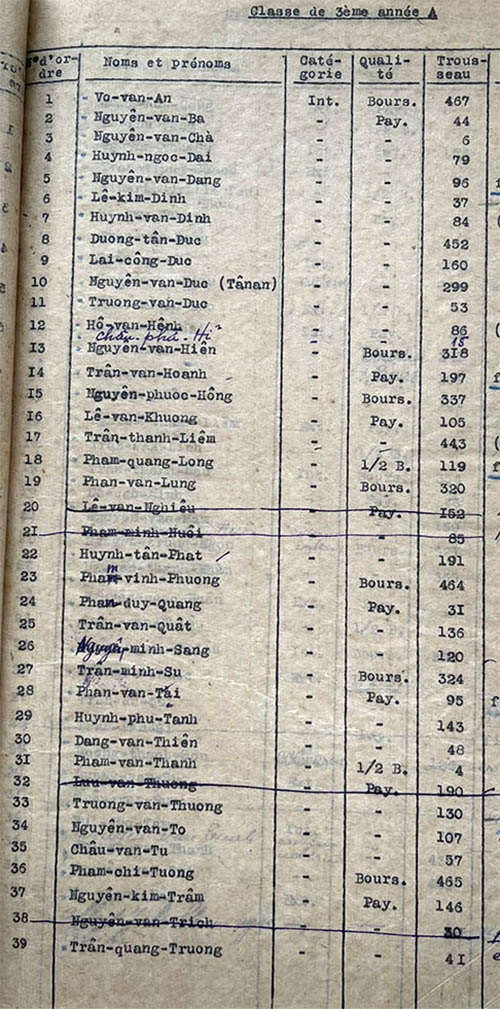 Classe de 3ème année A
N° d'or- Noms et prénoms Caté- Quali- Trous-
dre gorie té seau
1 Vo-van-An Int. Bours. 467
2 Nguyên-van-Ba - Pay. 44
3 Nguyên-van-Chà - - 6
4 Huynh-ngoc-Dai - - 79
5 Nguyên-van-Dang - - 96
6 Lê-kim-Dinh - - 37
7 Huynh-van-Dinh - - 84
8 Duong-tân-Duc - - 452
9 Lai-công-Duc - - 160
10 Nguyên-van-Duc (Tânan) - - 299
11 Truong-van-Duc - - 53
12 Hô-van-Hênh - - 86
Châu-phá-Hi 15
13 Nguyên-van-Hiên - Bours. 318
14 Trân-van-Hoanh - Pay. 197
15 Nguyên-phuoc-Hông - Bours. 337
16 Lê-van-Khuong - Pay. 105
17 Trân-thanh-Liêm - - 443
18 Pham-quang-Long - 1/2 B. 119
19 Phan-van-Lung - Bours. 320
20 Lê-van-Nghiêu - Pay. 152
21 Pham-minh-Nuôi - - 85
22 Huynh-tân-Phat - - 191
23 Pham-vinh-Phuong - Bours. 464
24 Phan-duy-Quang - Pay. 31
25 Trân-van-Quât - - 136
26 Nguyên-minh-Sang - - 120
27 Tran-minh-Su - Bours. 324
28 Phan-van-Tái - Pay. 95
29 Huynh-phu-Tanh - - 143
30 Dang-van-Thiên - - 48
31 Pham-van-Thanh - 1/2 B. 4
32 Luu-van-Thuong - Pay. 190
33 Truong-van-Thuong - - 130
34 Nguyên-van-To - - 107
35 Châu-van-Tu - - 57
36 Pham-chi-Tuong - Bours. 465
37 Nguyên-kim-Trâm - Pay. 146
38 Nguyên-van-Trich - - 30
39 Trân-quang-Truong - - 41